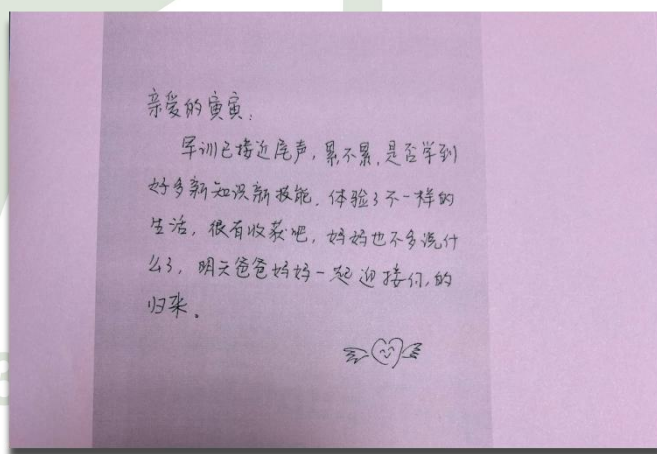 亲爱的寅寅：
军训已接近尾声，累不累，是否学到
好多新知识新技能，体验了不一样的
生活，很有收获吧，妈妈也不多说什
么了，明天爸爸妈妈一起迎接你的
归来。